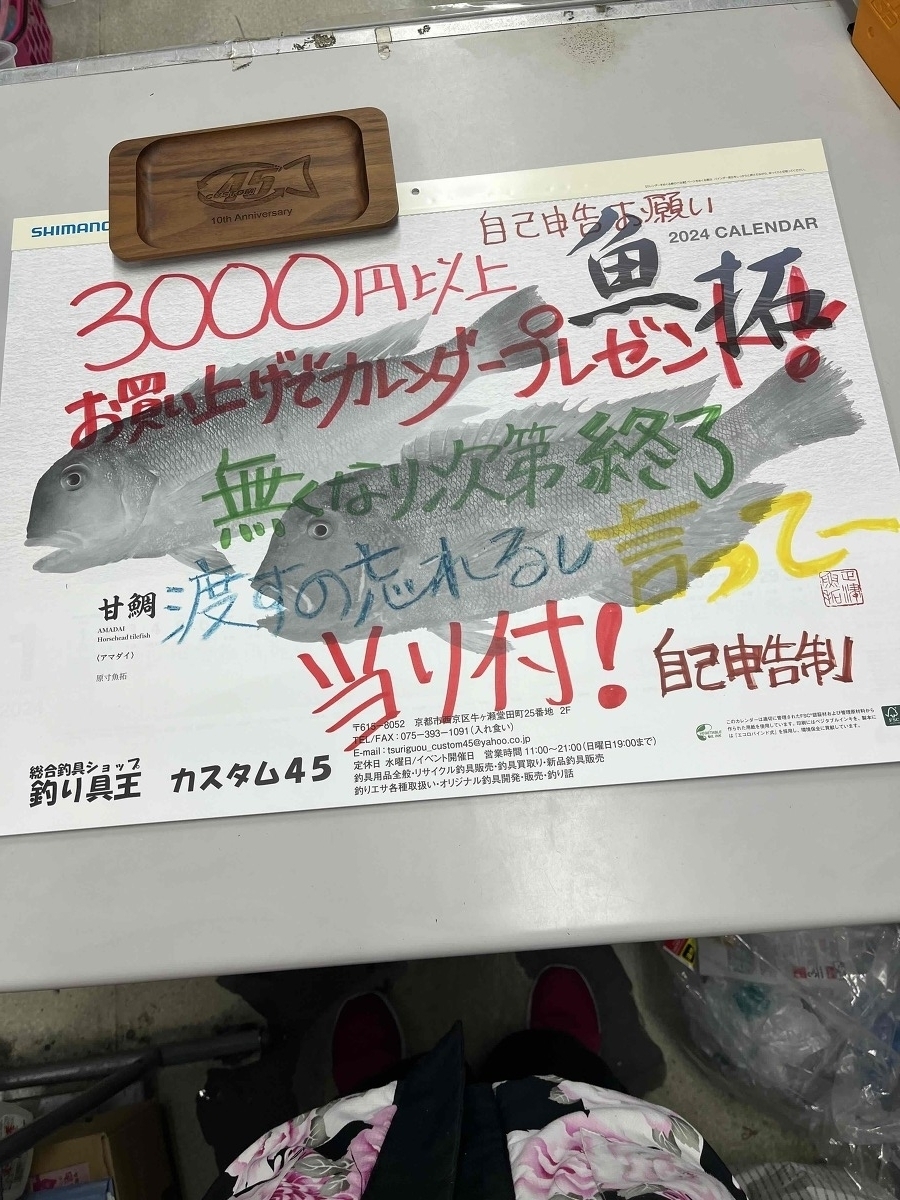 45
10th Anniversary
SHIMANO
自己申告お願い
2024 CALENDAR
魚拓
3000円以上
お買い上げでカレンダープレゼント!
無くなり次第終了
渡すの忘れるし言ってー
当り付!
自己申告制
甘鯛
AMADAI
Horsehead tilefish
(アマダイ)
原寸魚拓
総合釣具ショップ
釣り具王 カスタム45
〒615-8052 京都市西京区牛ヶ瀬堂田町25番地 2F
TEL/FAX:075-393-1091(入れ食い)
E-mail:tsuriguou_custom45@yahoo.co.jp
定休日 水曜日/イベント開催日 営業時間 11:00~21:00(日曜日19:00まで)
釣具用品全般・リサイクル釣具販売・釣具買取り・新品釣具販売
釣りエサ各種取扱い・オリジナル釣具開発・販売・釣り話
FSC